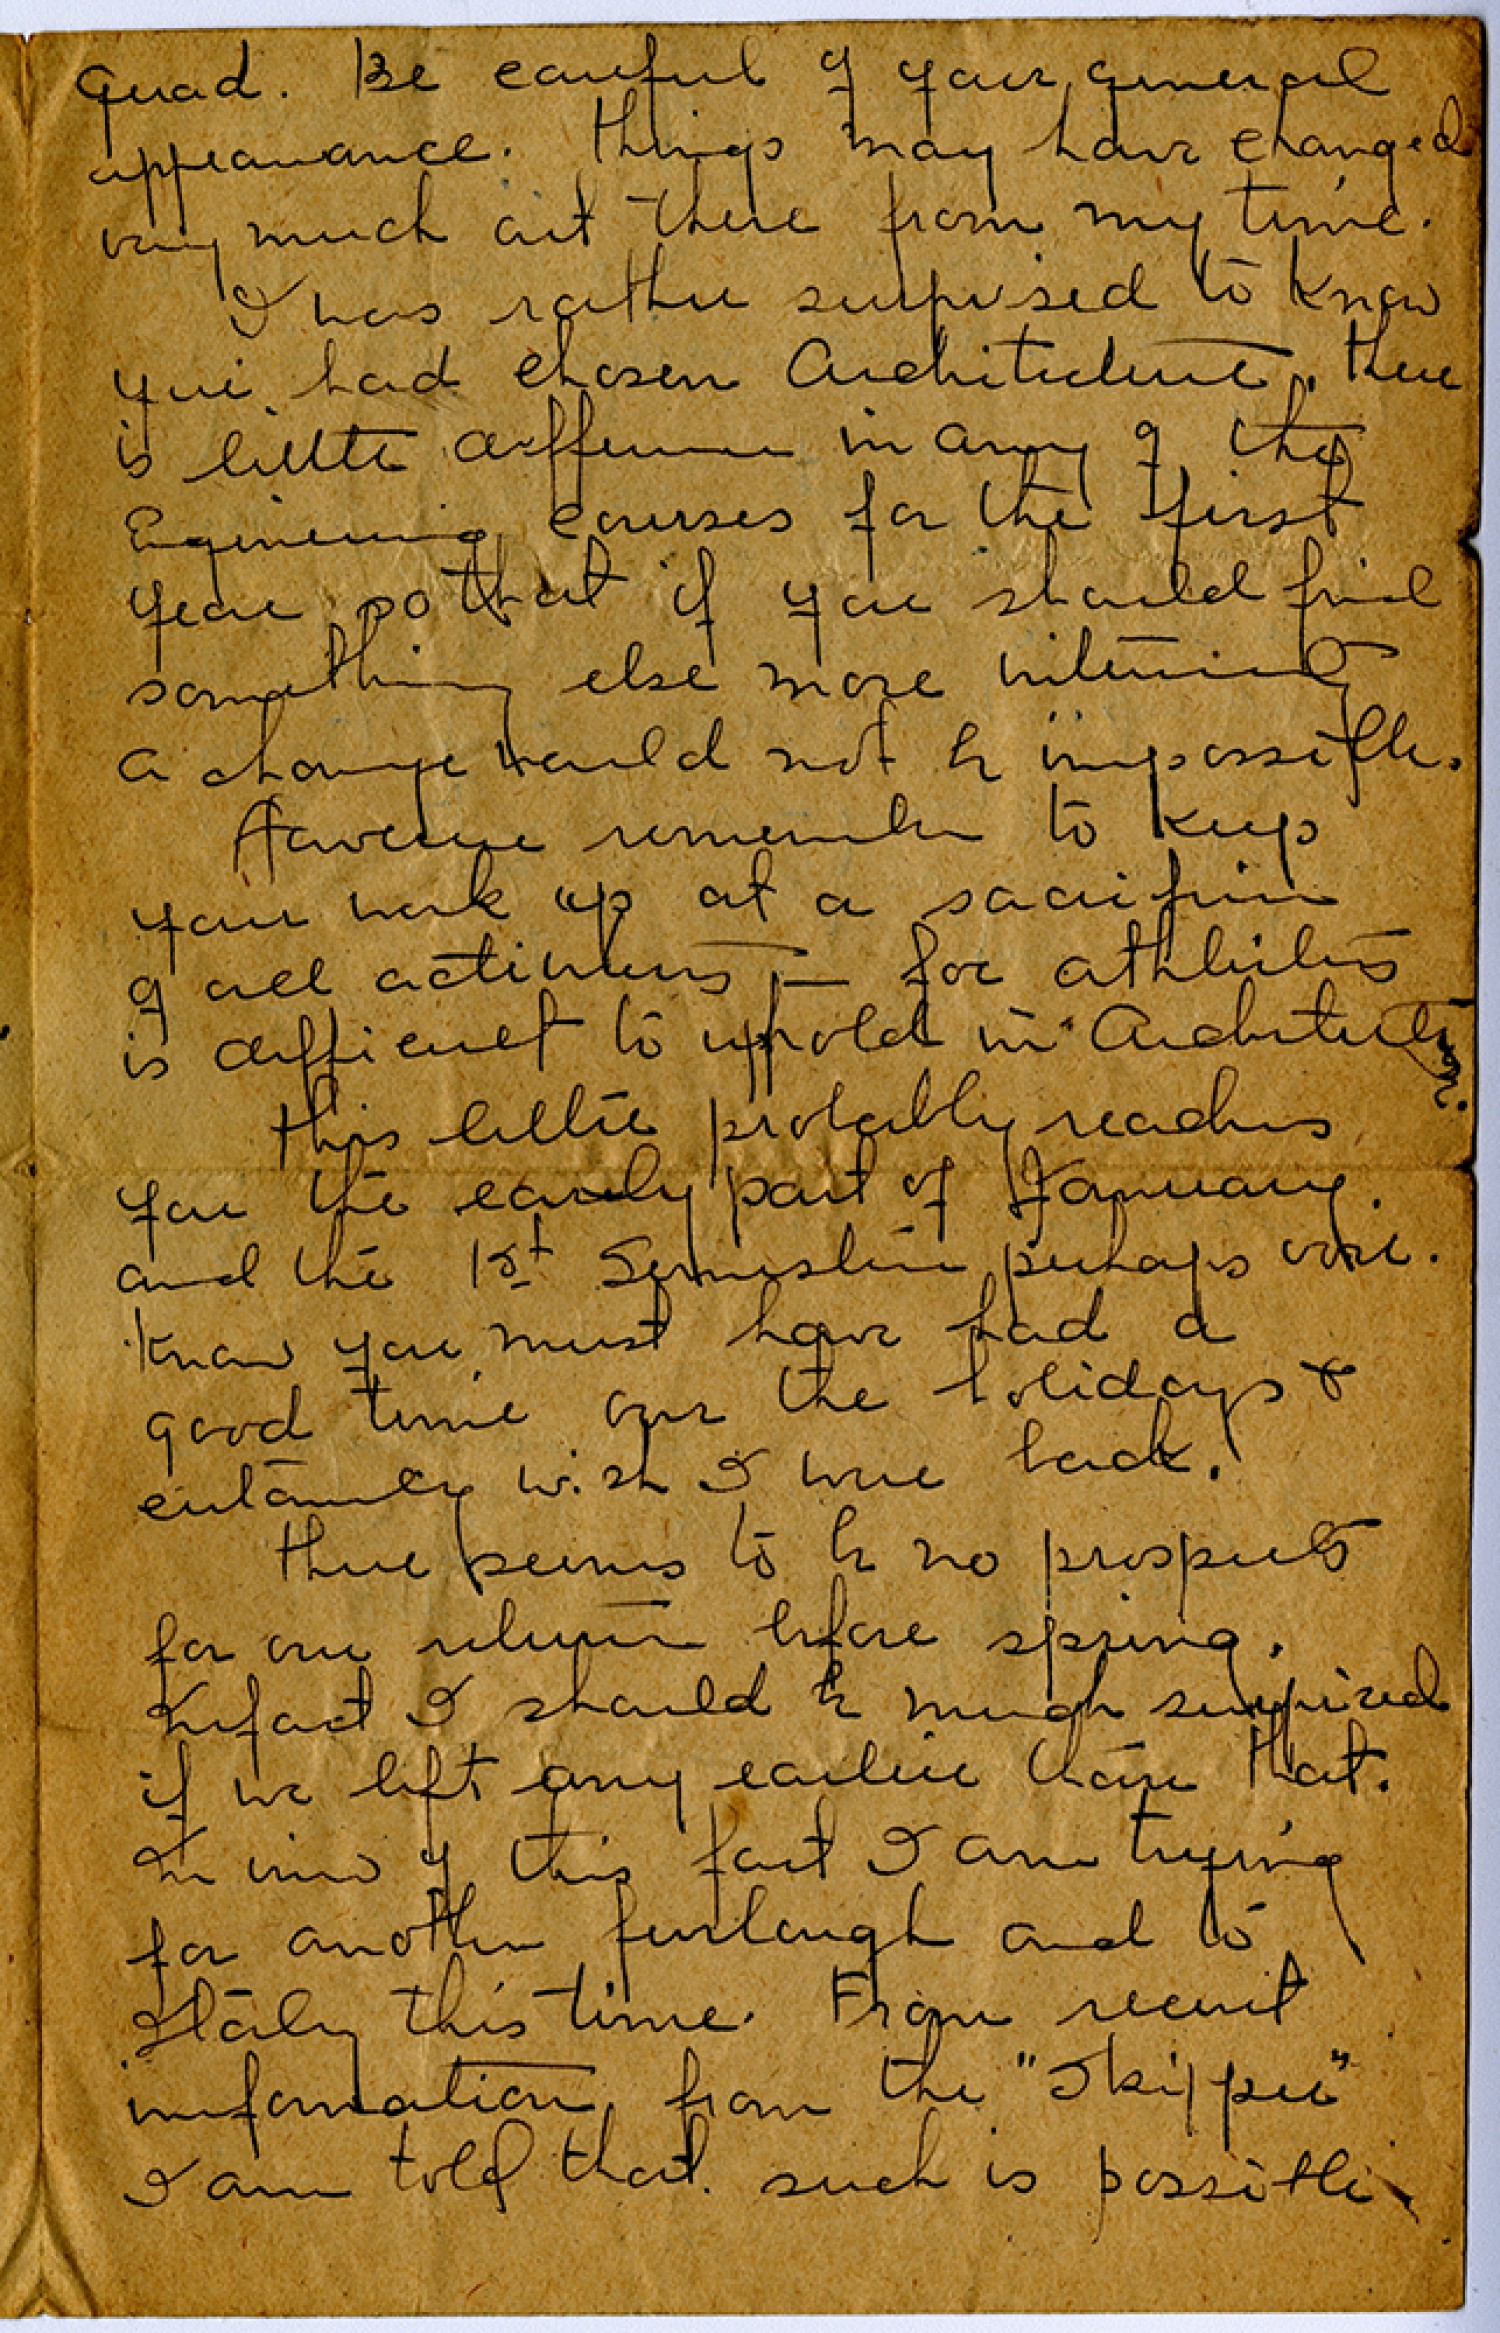 Quad. Be careful of your general
appearance. Things may have changed
very much out there from my time.
I was rather surprised to know
you had chosen Architecture. There
is little difference in any of the
Engineering courses for the first
year so that if you should find
something else more interesting
a change would not be impossible.
However remember to keep
your work up at a sacrifice
of all activities — for athletics
is difficult to uphold in Architecture.
This letter probably reaches
you the early part of January.
and the 1st Semester perhaps over.
Know you must have had a
good time over the holidays &
certainly wish I were back.
There seems to be no prospects
for our return before spring.
In fact I should be much surprised
if we left any earlier than that.
In view of this fact I am trying
for another furlough and to
Italy this time. From recent
information from the "Skipper"
I am told that such is possible.